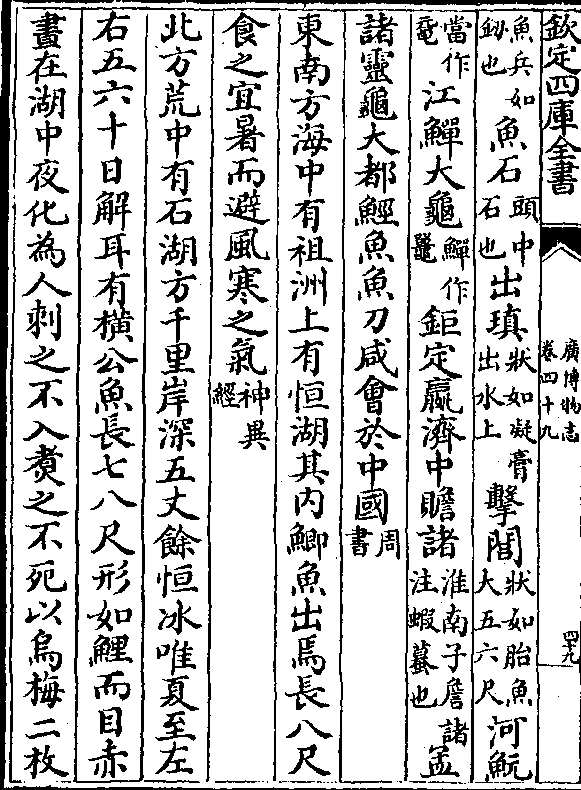 欽定四庫全書
廣博物志
卷四十九
四十九
魚兵如釖也魚石頭中石也出瑱狀如凝膏出水上擊閭狀如胎魚大五六尺河魭
當作黿江鱓大龜鱓作鼉鉅定蠃濟中瞻諸淮南子詹諸注蝦蟇也孟
諸靈龜大都經魚魚刀咸會於中國周書
東南方海中有祖洲上有恒湖其内鯽魚出焉長八尺
食之宜暑而避風寒之氣神異經
北方荒中有石湖方千里岸深五丈餘恒冰唯夏至左
右五六十日解耳有横公魚長七八尺形如鯉而目赤
晝在湖中夜化為人刺之不入煮之不死以烏梅二枚